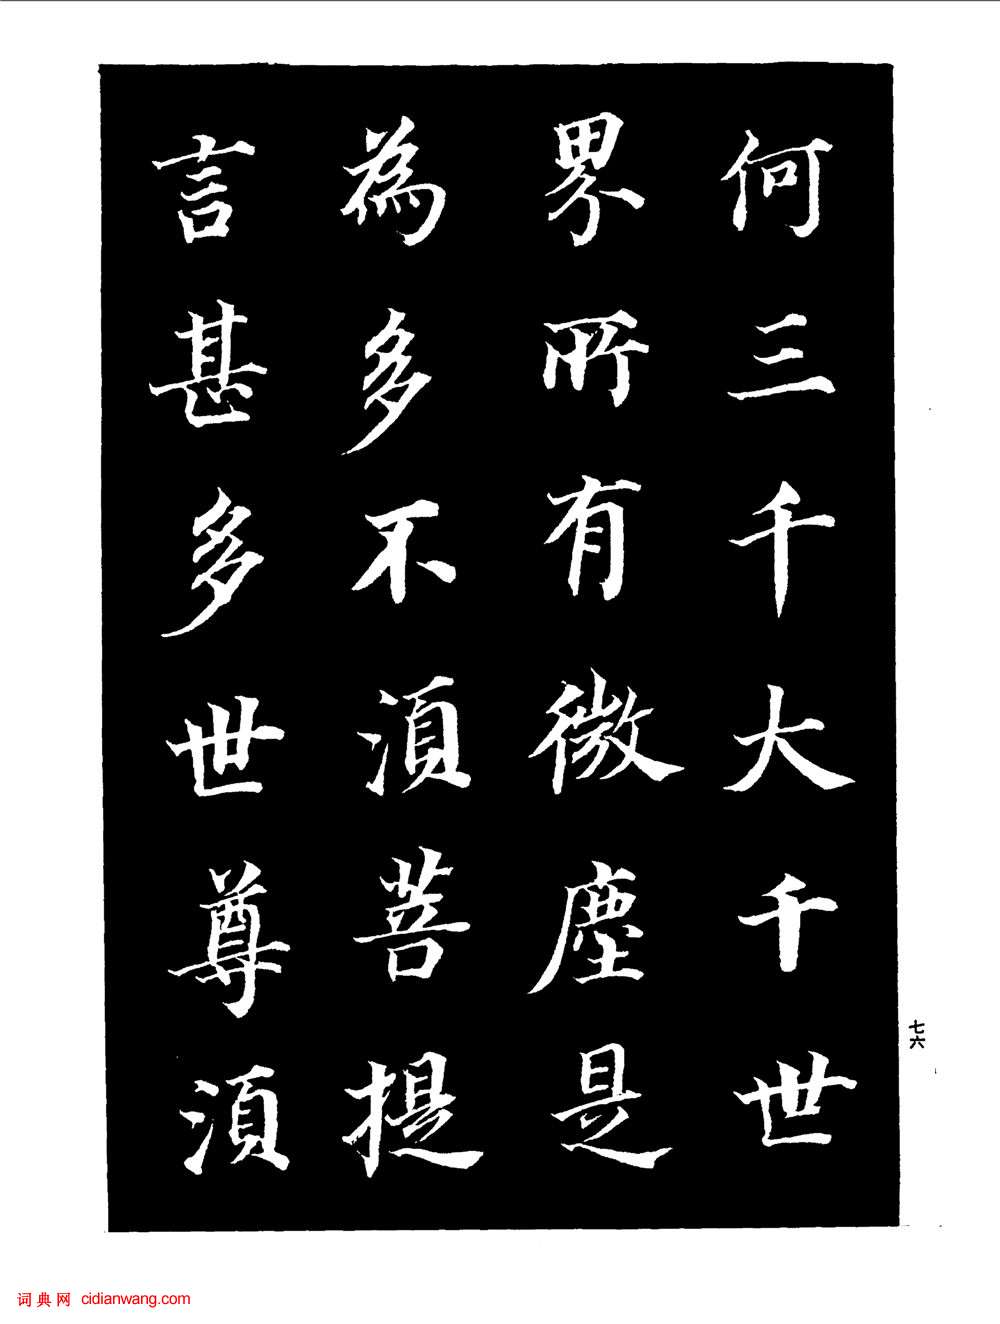 何三千大千世
界所有微塵是
為多不湏菩提
言甚多世尊湏
七六
词典网 cidianwang.com